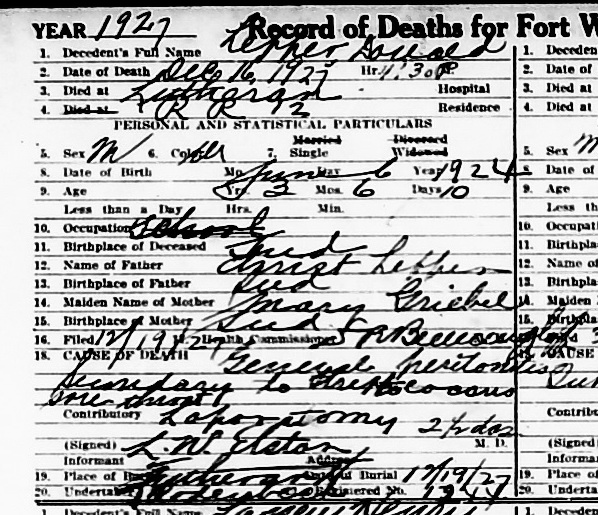 YEAR 1927 Record of Deaths for Fort W
1. Decedent's Full Name Lepper Donald 1. Deceden
2. Date of Death Dec 16, 1927 Hr. 4:30 P. 2. Date of
3. Died at Lutheran Hospital 3. Died at
4. Died at R R 12 Residence 4. Died at
PERSONAL AND STATISTICAL PARTICULARS
Married Divorced
5. Sex M 6. Color W 7. Single Widowed 5. Sex M
8. Date of Birth Mo. June Day 6 Year 1924 8. Date of
9. Age Yr. 3 Mos. 6 Days 10 9. Age
Less than a Day Hrs. Min. Less th
10. Occupation School 10. Occupati
11. Birthplace of Deceased Ind 11. Birthpla
12. Name of Father Christ Lepper 12. Name of
13. Birthplace of Father Ind 13. Birthpla
14. Maiden Name of Mother Mary Griebel 14. Maiden
15. Birthplace of Mother Ind 15. Birthpla
16. Filed 12/19/27 Health Commissioner
18. CAUSE OF DEATH General peritonitis CAUSE
secondary to streptococcus
sore throat
Contributory Laporotomy 2 1/2 das Contribu
(Signed) L. W. Elston M. D. (Signed)
Informant Address Informan
19. Place of Burial Date of Burial 12/19/27 19. Place of
20. Undertaker Registered No. 20. Undertak
1. Decedent's Full Name 1. Deceden